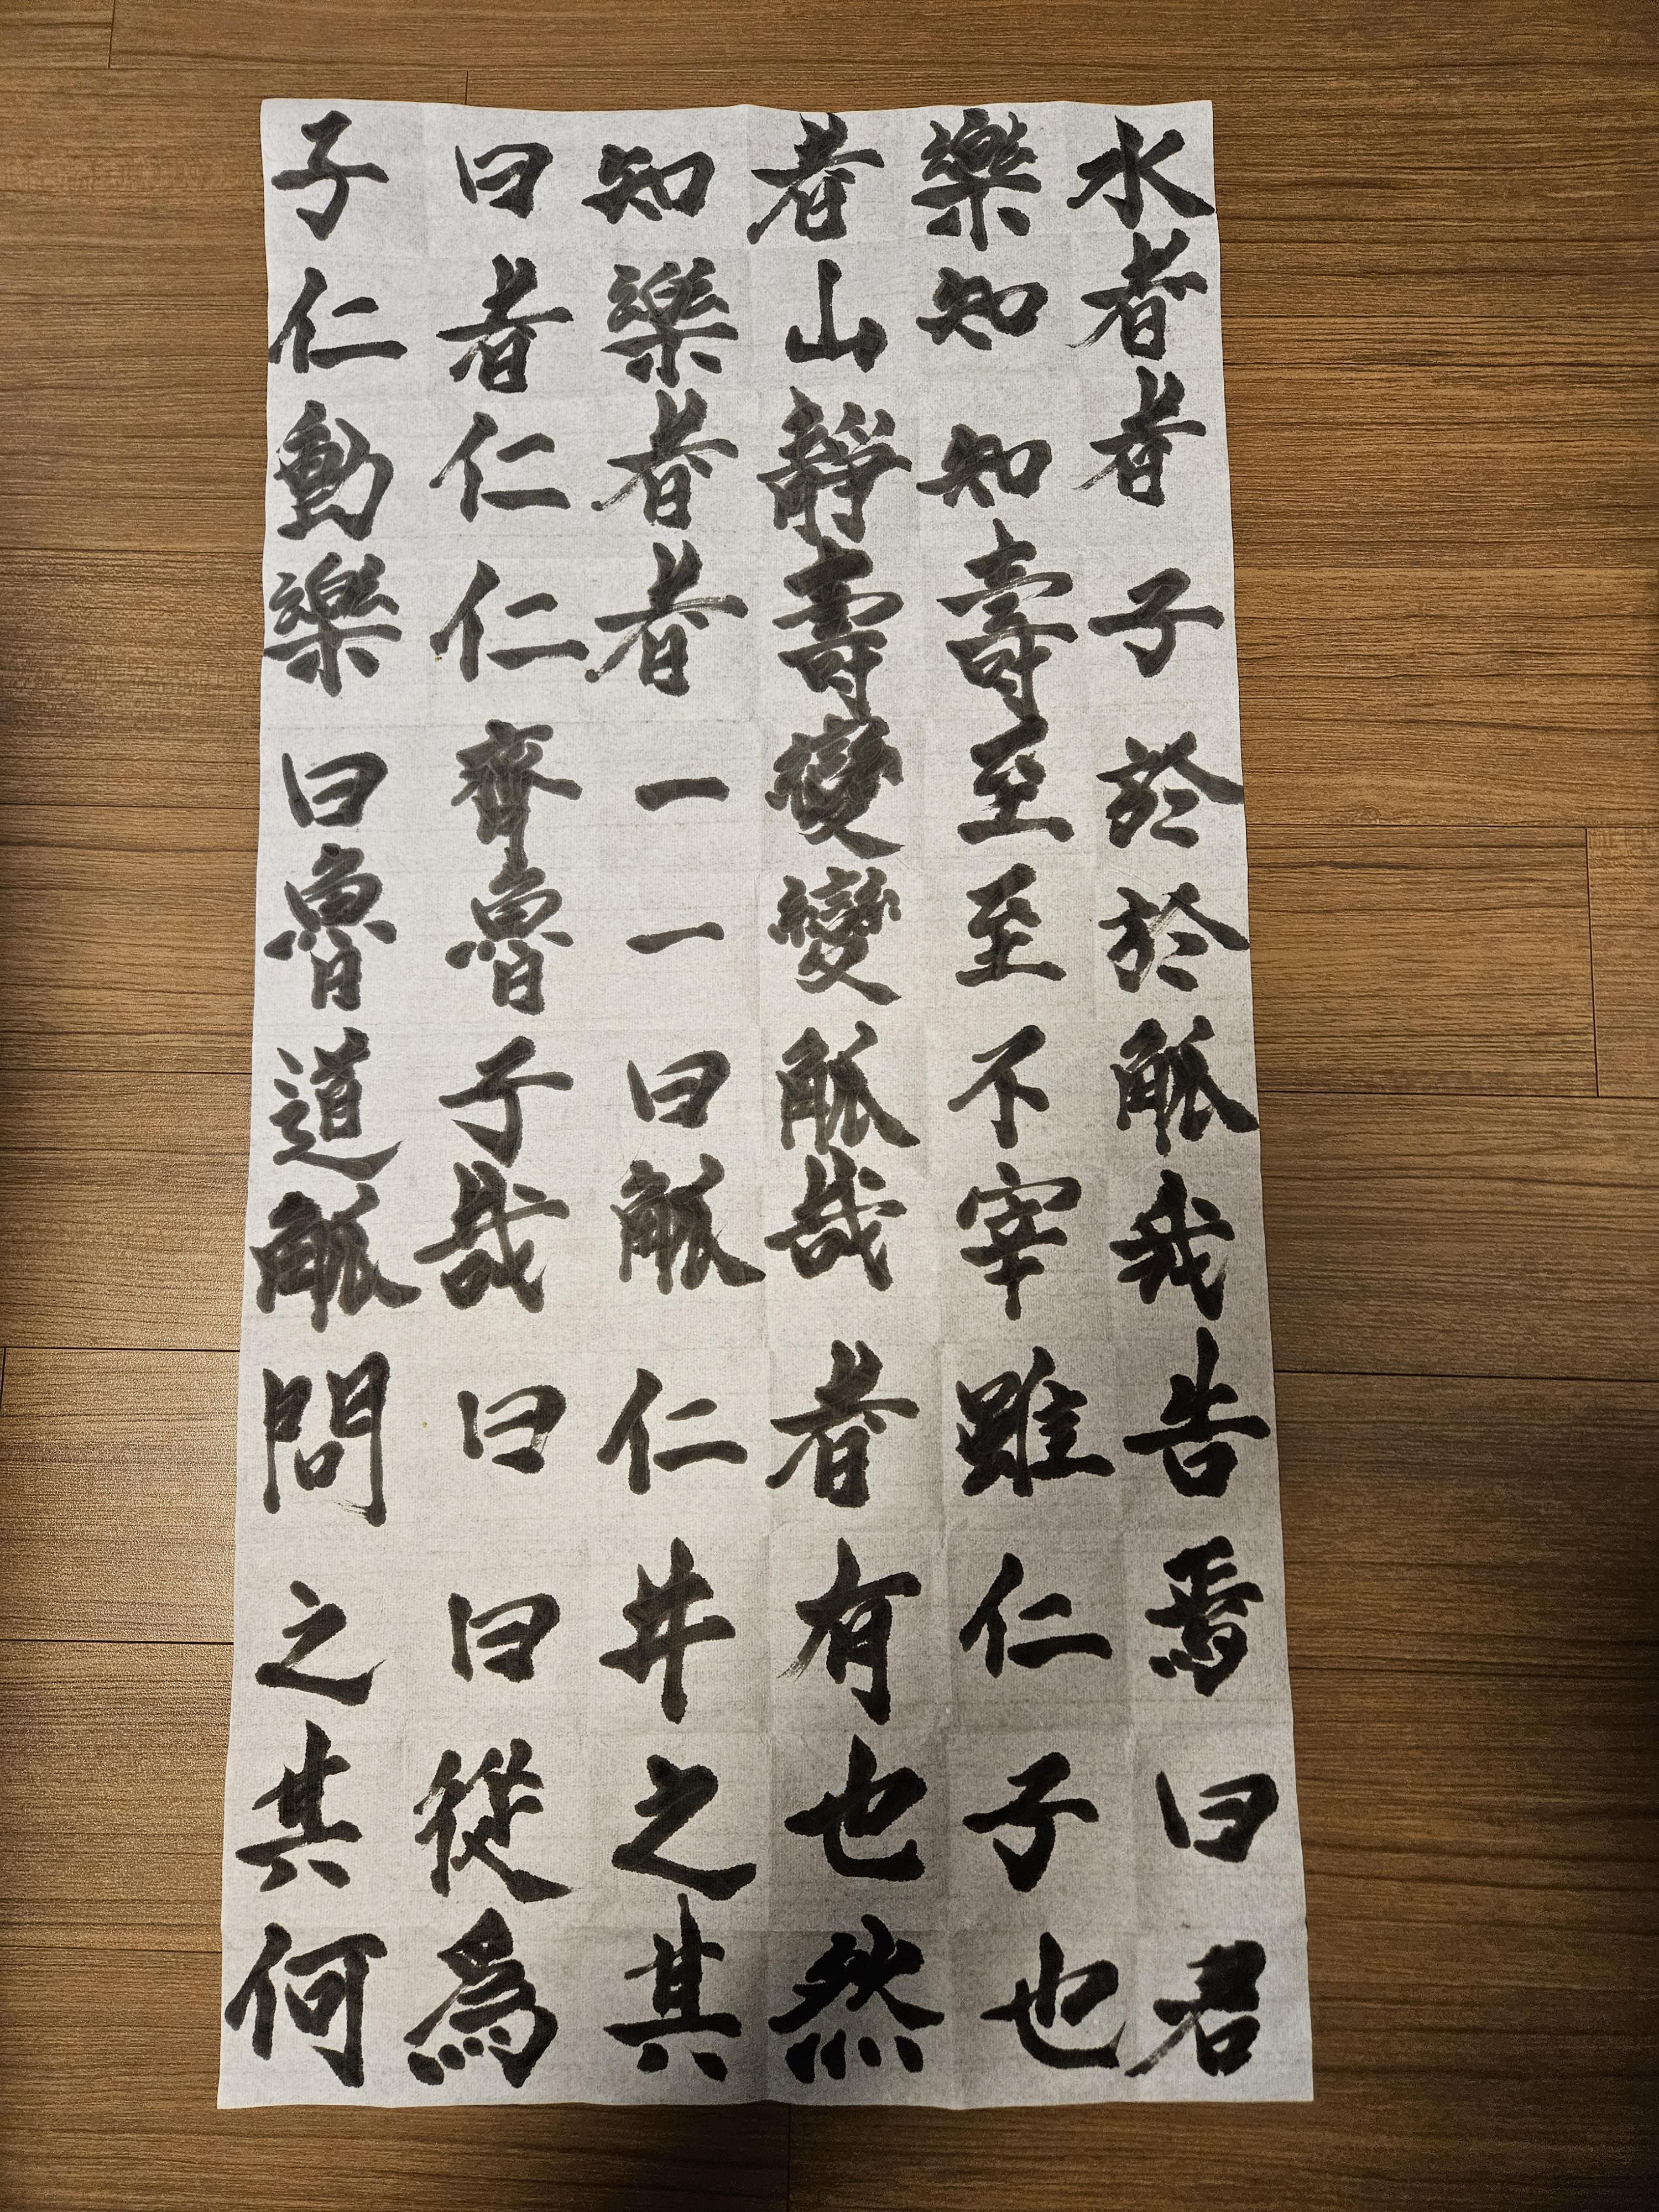 子曰知者樂水
仁者樂山知者
動仁者靜知者
樂仁者壽壽子
曰齊一變至於
魯魯一變至於
道子曰觚不觚
觚哉觚哉宰我
問曰仁者雖告
之曰井有仁焉
其從之也子曰
何爲其然也君